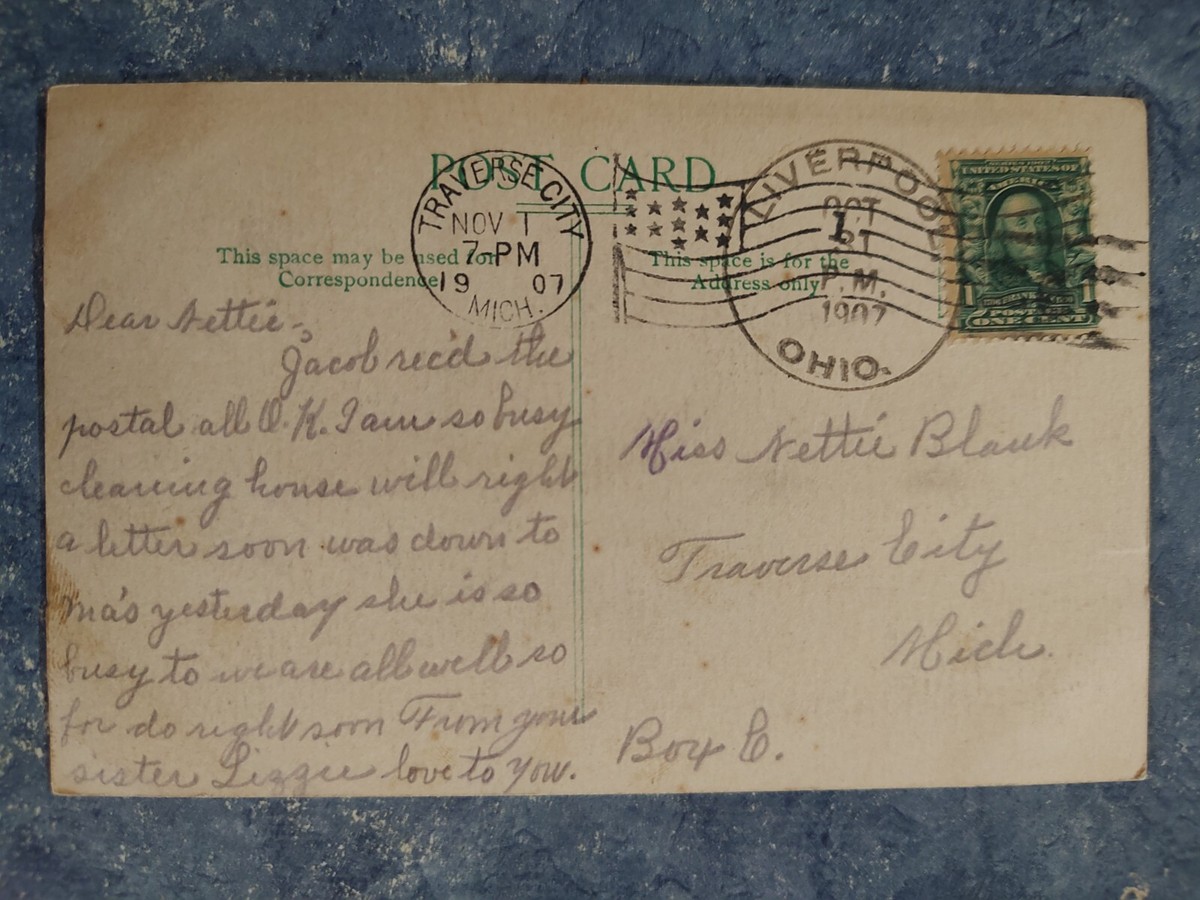 POST CARD
TRAVERSE CITY
NOV 1
7-PM
19 07
MICH.
LIVERPOOL
OCT
31
P.M.
1907
OHIO.
1
UNITED STATES OF
AMERICA
POSTAGE
1 1
ONE CENT
This space may be used for
Correspondence
This space is for the
Address only
Dear Nettie -,
Jacob rec'd the
postal all O.K. I am so busy
cleaning house will right
a letter soon was down to
ma's yesterday she is so
busy to we are all well so
for do right soon From your
sister Lizzie love to you.
Miss Nettie Blank
Traverse City
Mich.
Box C.